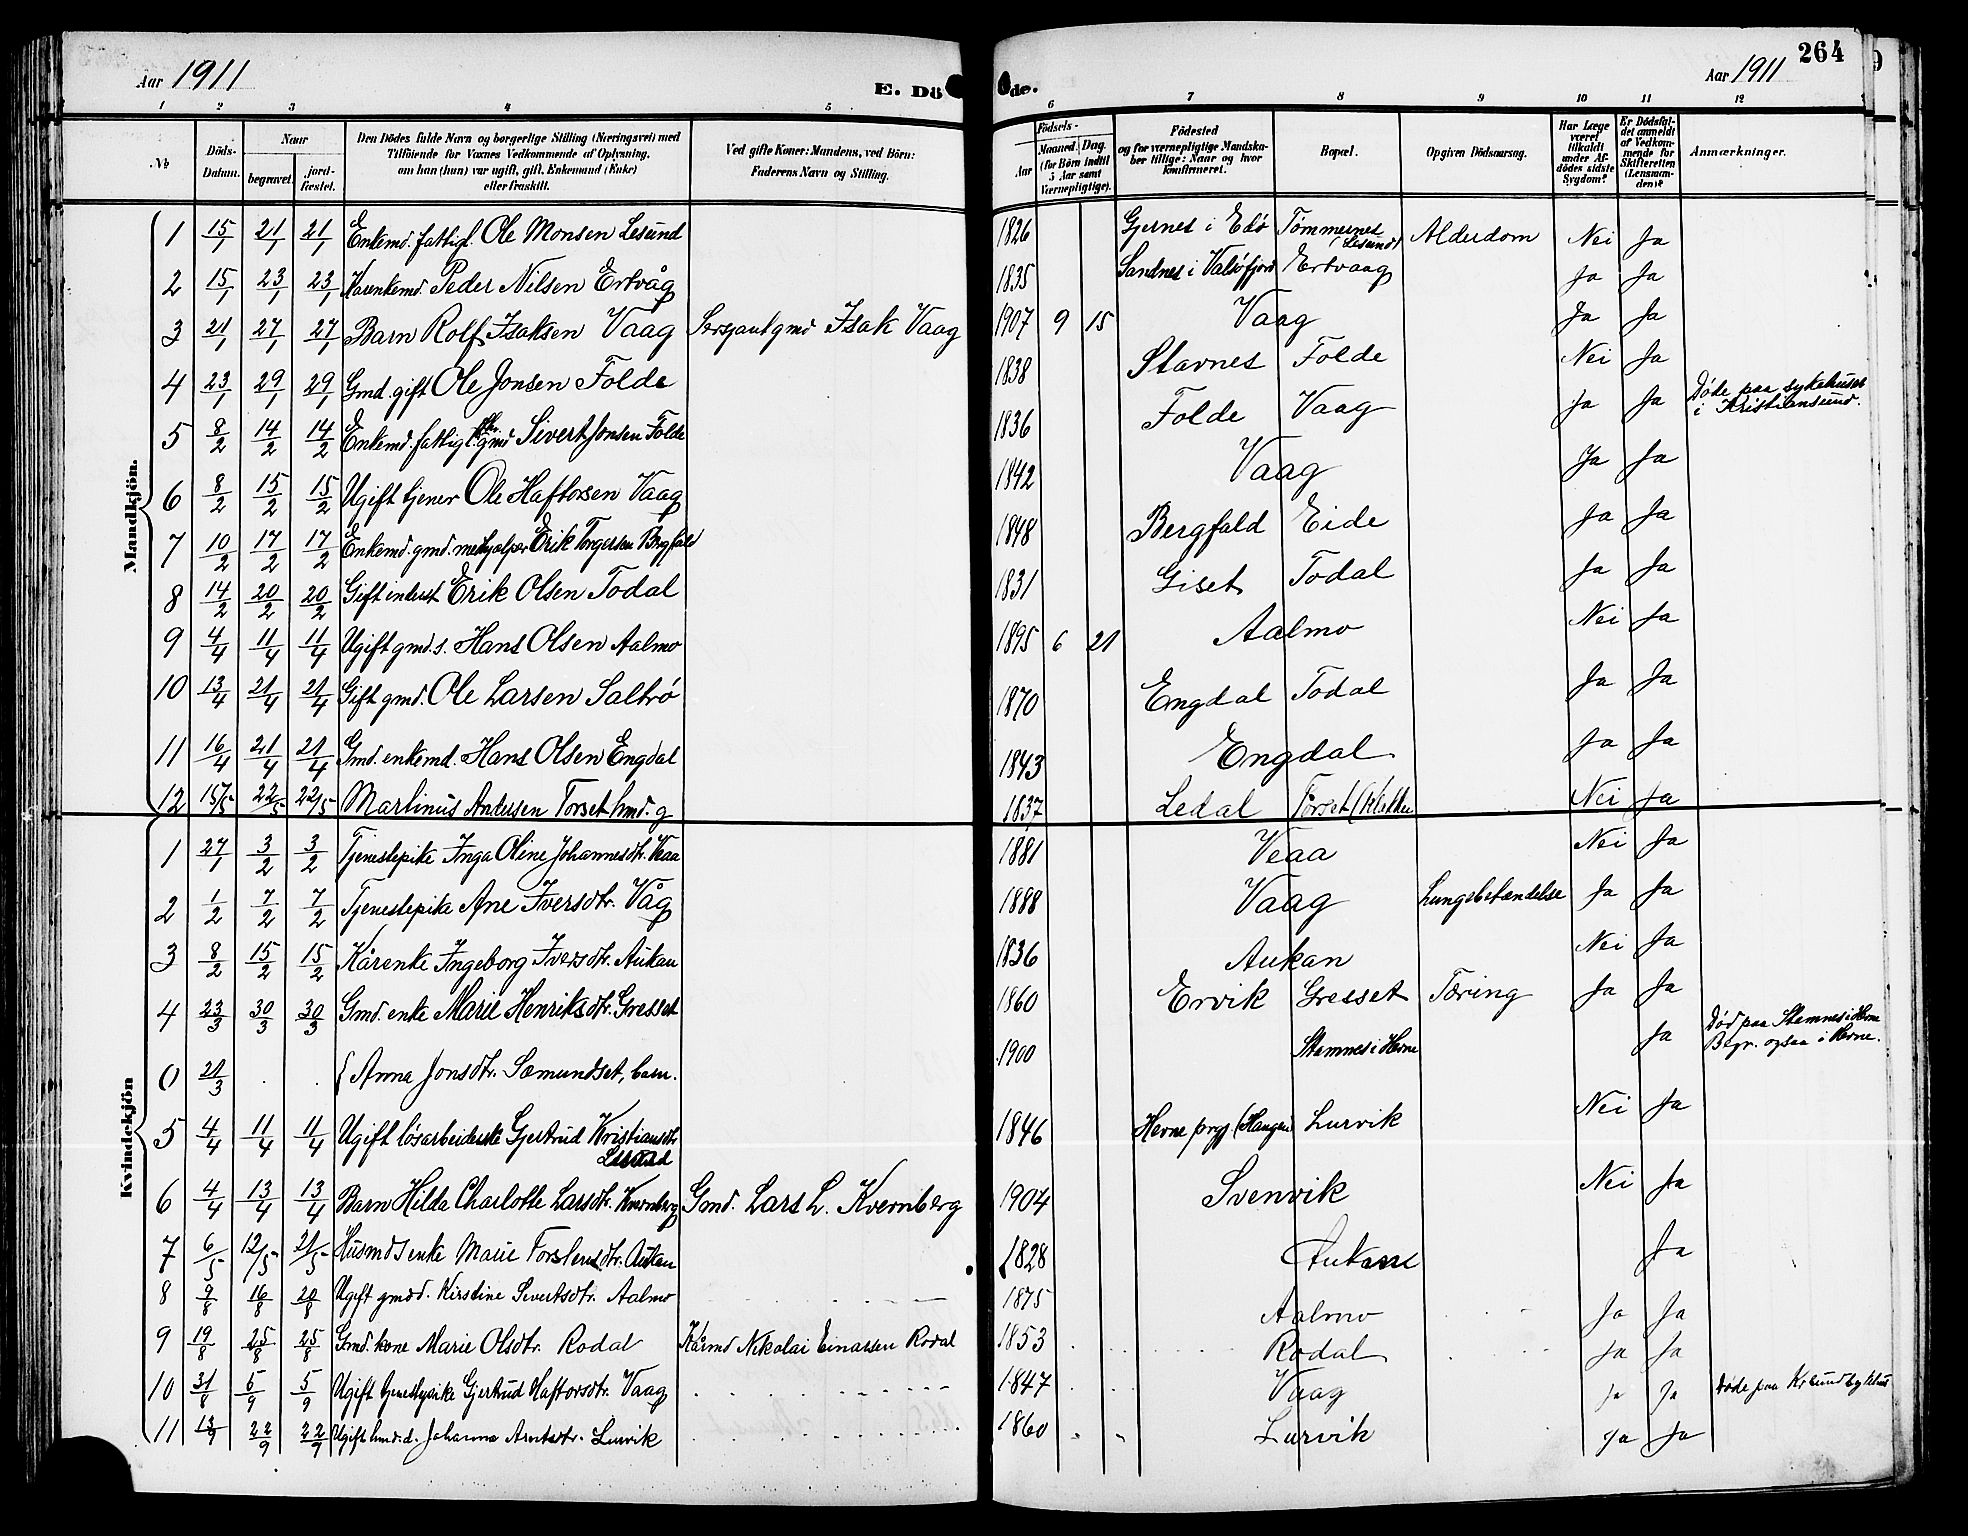 Aar 1911
E. Dö de.
Aar 1911
264
1 2 3 4 5 6 7 8 9 10 11 12
No
Döds-Datum.
Naar
begravet.
jord-fæstet.
Den Dödes fulde Navn og borgerlige Stilling (Næringsvei) med
Tilföiende for Voxnes Vedkommende af Oplysning,
om han (hun) var ugift, gift, Enkemand (Enke)
eller fraskilt.
Ved gifte Koner: Mandens, ved Börn:
Faderens Navn og Stilling.
Födsels-
Aar
Maaned. Dag.
(for Börn indtil
5 Aar samt
Værnepligtige).
Födested
og for værnepligtige Mandska-
ber tillige: Naar og hvor
konfirmeret.
Bopæl.
Opgiven Dödsaarsag.
Har Læge
været
tilkaldt
under Af-
dödes sidste
Sygdom?
Er Dödsfal-
det anmeldt
af Vedkom-
mende for
Skifteretten
(Lensman-
den)?
Anmærkninger.
Mandkjön.
1 15/1 21/1 21/1 Enkemd. fattigl. Ole Monsen Lesund 1826 Gjernes i Edø Tømmernes (Lesund) Alderdom Nei Ja
2 15/1 23/1 23/1 Kårenkemd. Peder Nilsen Ertvåg 1835 Sandnes i Valsøfjord Ertvaag Ja Ja
3 21/1 27/1 27/1 Barn Rolf Isaksen Vaag Sersjant gmd Isak Vaag 1907 9 15 Vaag Ja Ja
4 23/1 29/1 29/1 Gmd. gift Ole Jonsen Folde 1838 Stavnes Folde Nei Ja
5 8/2 14/2 14/2 Enkemd. fattigl. gmd Sivert Jonsen Folde 1836 Folde Vaag Ja Ja Døde paa sykehuset
i Kristiansund.
6 8/2 15/2 15/2 Ugift tjener Ole Haftorsen Vaag 1842 Vaag Ja Ja
7 10/2 17/2 17/2 Enkemd. gmd. Erik Torgersen Bergfald 1848 Bergfald Eide Ja Ja
8 14/2 20/2 20/2 Gift inderst Erik Olsen Todal 1831 Giset Todal Ja Ja
9 4/4 11/4 11/4 Ugift gmd.s. Hans Olsen Aalmo 1895 6 21 Aalmo Nei Ja
10 13/4 21/4 21/4 Gift gmd. Ole Larsen Saltrø 1870 Engdal Todal Ja Ja
11 16/4 21/4 21/4 Gmd. enkemd. Hans Olsen Engdal 1843 Engdal Ja Ja
12 15/5 22/5 22/5 Martinus Andersen Torset hmd. g 1837 Ledal Torset Nei Ja
Kvindekjön
1 27/1 3/2 3/2 Tjenestepike Inga Oline Johannesdtr. Veaa 1881 Veaa Nei Ja
2 1/2 7/2 7/2 Tjenestepike Ane Iversdtr. Våg 1888 Vaag Lungebetændelse Ja Ja
3 8/2 15/2 15/2 Kårenke Ingeborg Iversdtr. Aukan 1836 Aukan Nei Ja
4 23/3 30/3 30/3 Gmd. enke Marie Henriksdtr. Gresset 1860 Ervik Gresset Tæring Ja Ja
0 21/3 . . { Anna Jonsdtr. Sæmundset, barn. 1900 Stamnes i Hevne Ja Død paa Stamnes i Hevne
Begr. ogsaa i Hevne.
5 4/4 11/4 11/4 Ugift løsarbeiderske Gjertrud Kristiansdtr. 1846 Hevne prgj. (Haugen) Lurvik Nei Ja
6 4/4 13/4 13/4 Barn Hilda Charlotte Larsdtr. Kvernberg Gmd. Lars L. Kvernberg 1904 Svenvik Nei Ja
7 6/5 12/5 21/5 Husmds enke Marie Forstensdtr. Aukan 1828 Aukan Ja
8 9/8 16/8 20/8 Ugift gmdd. Kirstine Sivertsdtr. Aalmo 1875 Aalmo Ja Ja
9 19/8 25/8 25/8 Gmd. kone Marie Olsdtr. Rodal Kårmd Nikolai Einassen Rodal 1853 Rodal Ja Ja
10 31/8 5/9 5/9 Ugift tjenestepike Gjertrud Haftorsdtr. Vaag 1847 Vaag Ja Ja Døde paa Krsund sykehus
11 13/9 22/9 22/9 Ugift hmd.d. Johanna Arntsdtr. Lurvik 1860 Lurvik Ja Ja